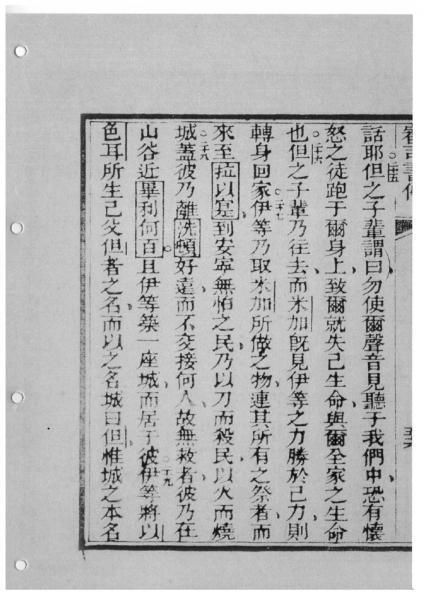 審司書傳
五六
話耶但之子輩謂曰勿使爾聲音見聽于我們中恐有懷
怒之徒跑于爾身上致爾就失己生命與爾全家之生命
也但之子輩乃往去而米加旣見伊等之力勝於己力則
轉身回家伊等乃取米加所做之物連其所有之祭者而
來至拉以寔到安寧無怕之民乃以刀而殺民以火而燒
城蓋彼乃離洗頓好遠而不交接何人故無救者彼乃在
山谷近畢利何百且伊等築一座城而居于彼伊等將以
色耳所生己父但者之名而以之名城曰但惟城之本名